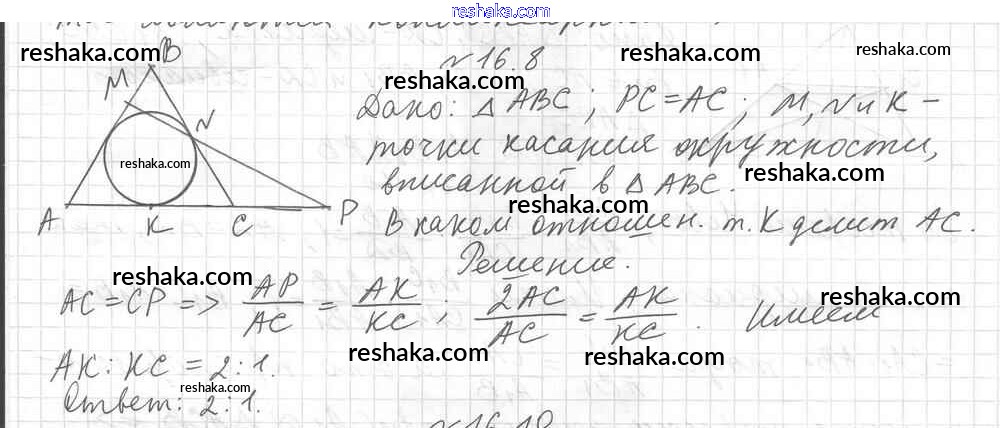 reshaka.com
reshaka.com
B
№16.8
reshaka.com
M
reshaka.com
N
Дано: △ABC; PC=AC; M, N и K –
точки касания окружности,
reshaka.com
reshaka.com
вписанной в △ABC.
reshaka.com
A K C P
В каком отношен. т. K делит AC.
Решение.
reshaka.com
AC=CP => AP/AC = AK/KC; 2AC/AC = AK/KC. Имеем
reshaka.com
reshaka.com
reshaka.com
AK:KC=2:1.
reshaka.com
Ответ: 2:1.
№16.10